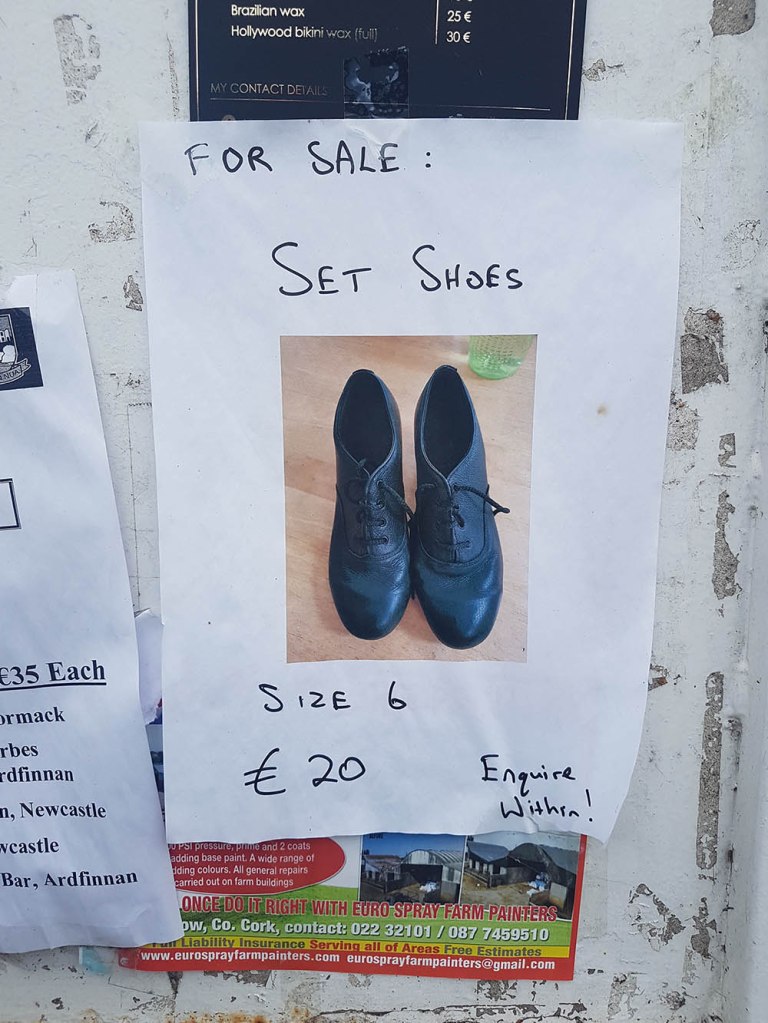 Brazilian wax 25 €
Hollywood bikini wax (full) 30 €
MY CONTACT DETAILS
FOR SALE:
SET SHOES
SIZE 6
€20
Enquire
Within!
€35 Each
ormack
rbes
rdfinnan
n, Newcastle
wcastle
Bar, Ardfinnan
PSI pressure, prime and 2 coats
adding base paint. A wide range of
dding colours. All general repairs
carried out on farm buildings
ONCE DO IT RIGHT WITH EURO SPRAY FARM PAINTERS
ow, Co. Cork, contact: 022 32101 / 087 7459510
Full Liability Insurance Serving all of Areas Free Estimates
www.eurosprayfarmpainters.com eurosprayfarmpainters@gmail.com